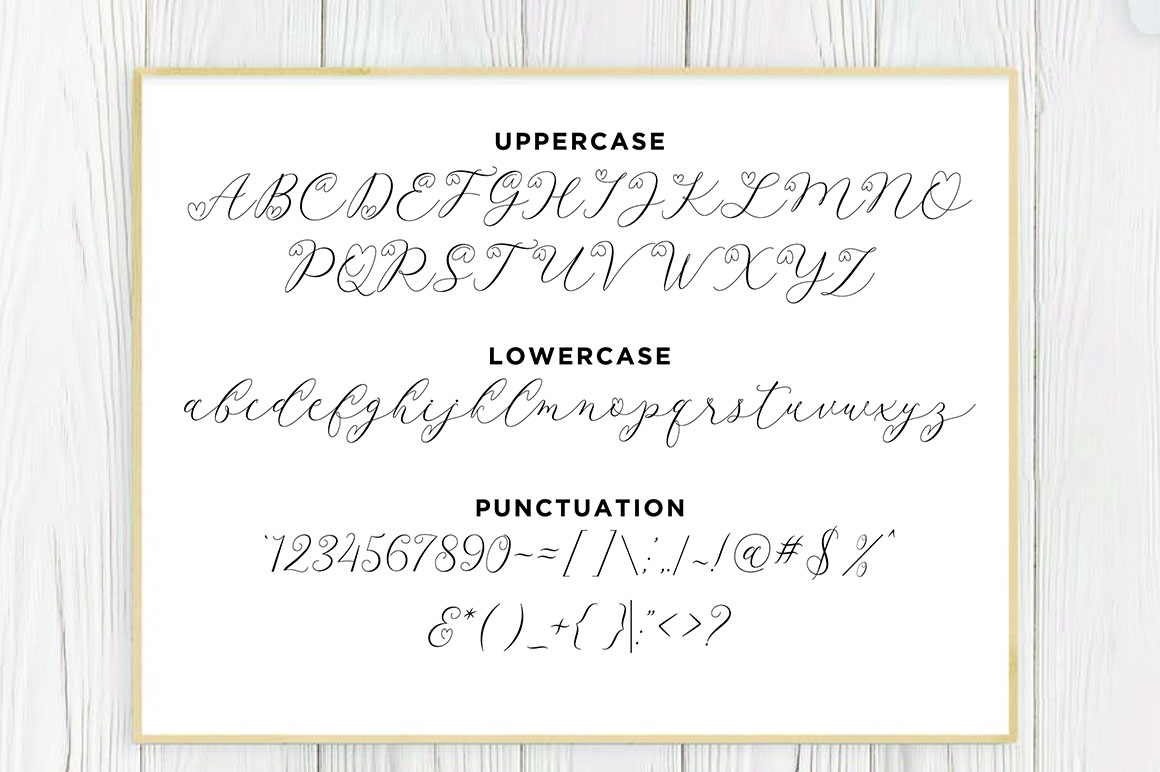 UPPERCASE
ABCDEFGHIJKLMNO
PQRSTUVWXYZ
LOWERCASE
abcdefghijklmnopqrstuvwxyz
PUNCTUATION
`1234567890-=[ ]\;',./~!@#$%^
&*( )_+{ }|:"<>?